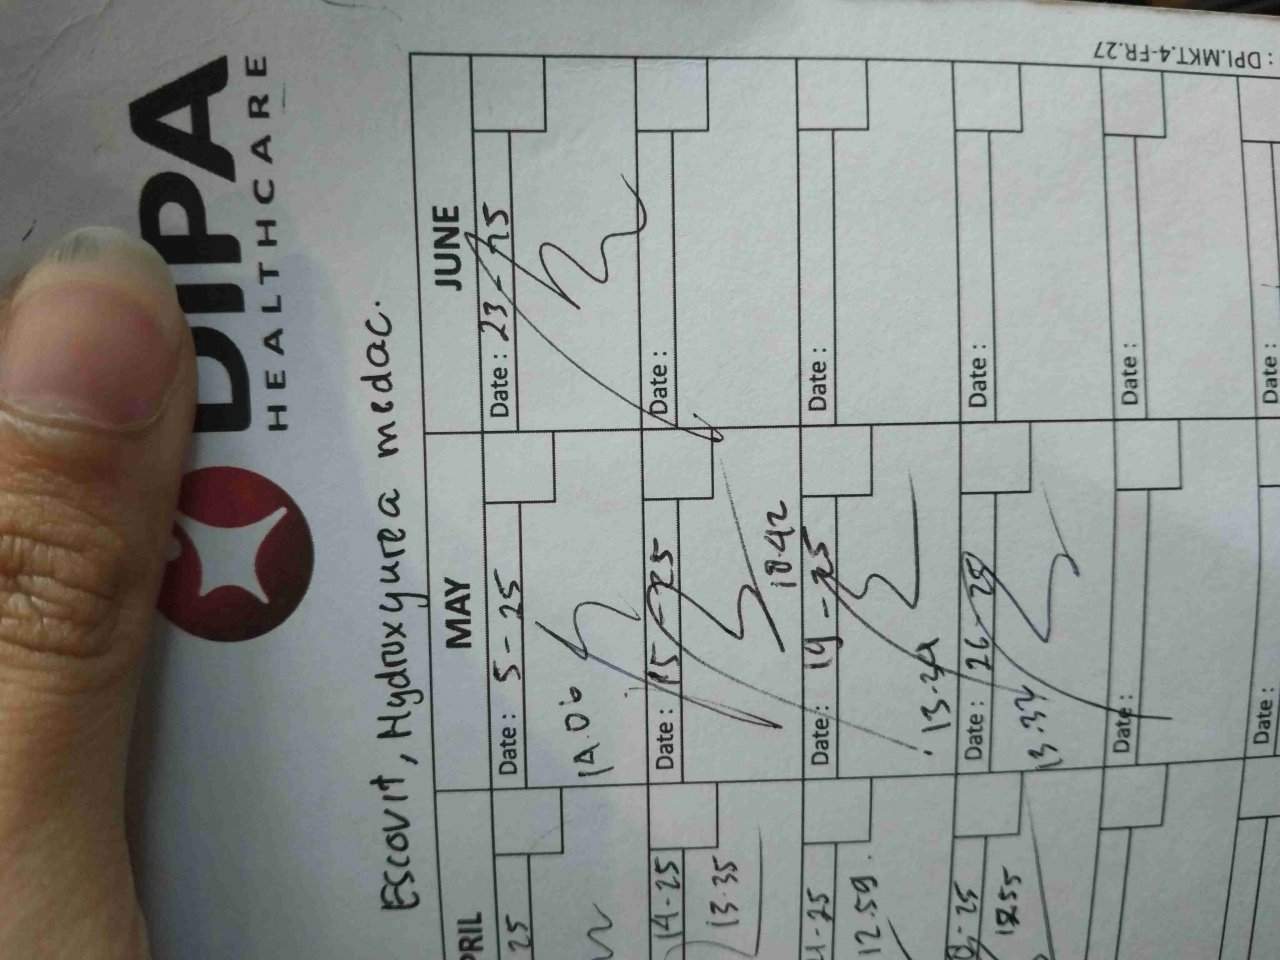 DIPA
HEALTHCARE
: DPI.MKT.4-FR.27
Escovit, Hydroxyurea medac.
PRIL MAY JUNE
25
Date : 5 - 25
14.06
Date : 23 -
14-25
13.35
Date : 15 - 25
10.42
Date :
-25
12.59.
Date : 19 - 25
13.34
Date :
- 25
12.55
Date : 26 - 25
13.37
Date :
Date :
Date :
Date :
Date :